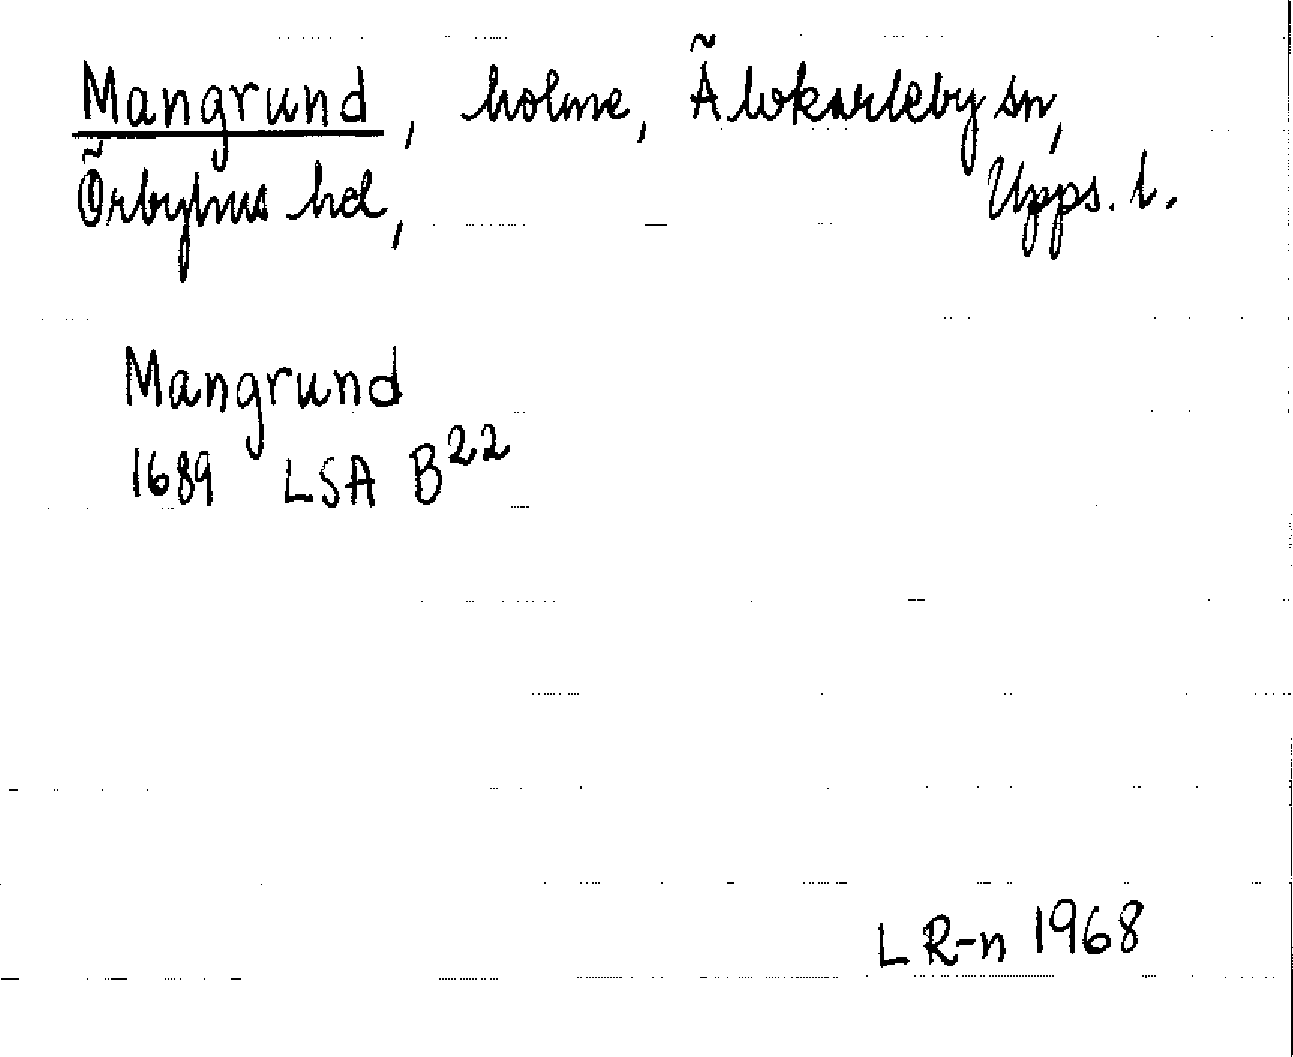 Mangrund, holme, Älvkarleby sn,
Örbyhus hd, Upps. l.
Mangrund
1689 LSA B²²
L R-n 1968